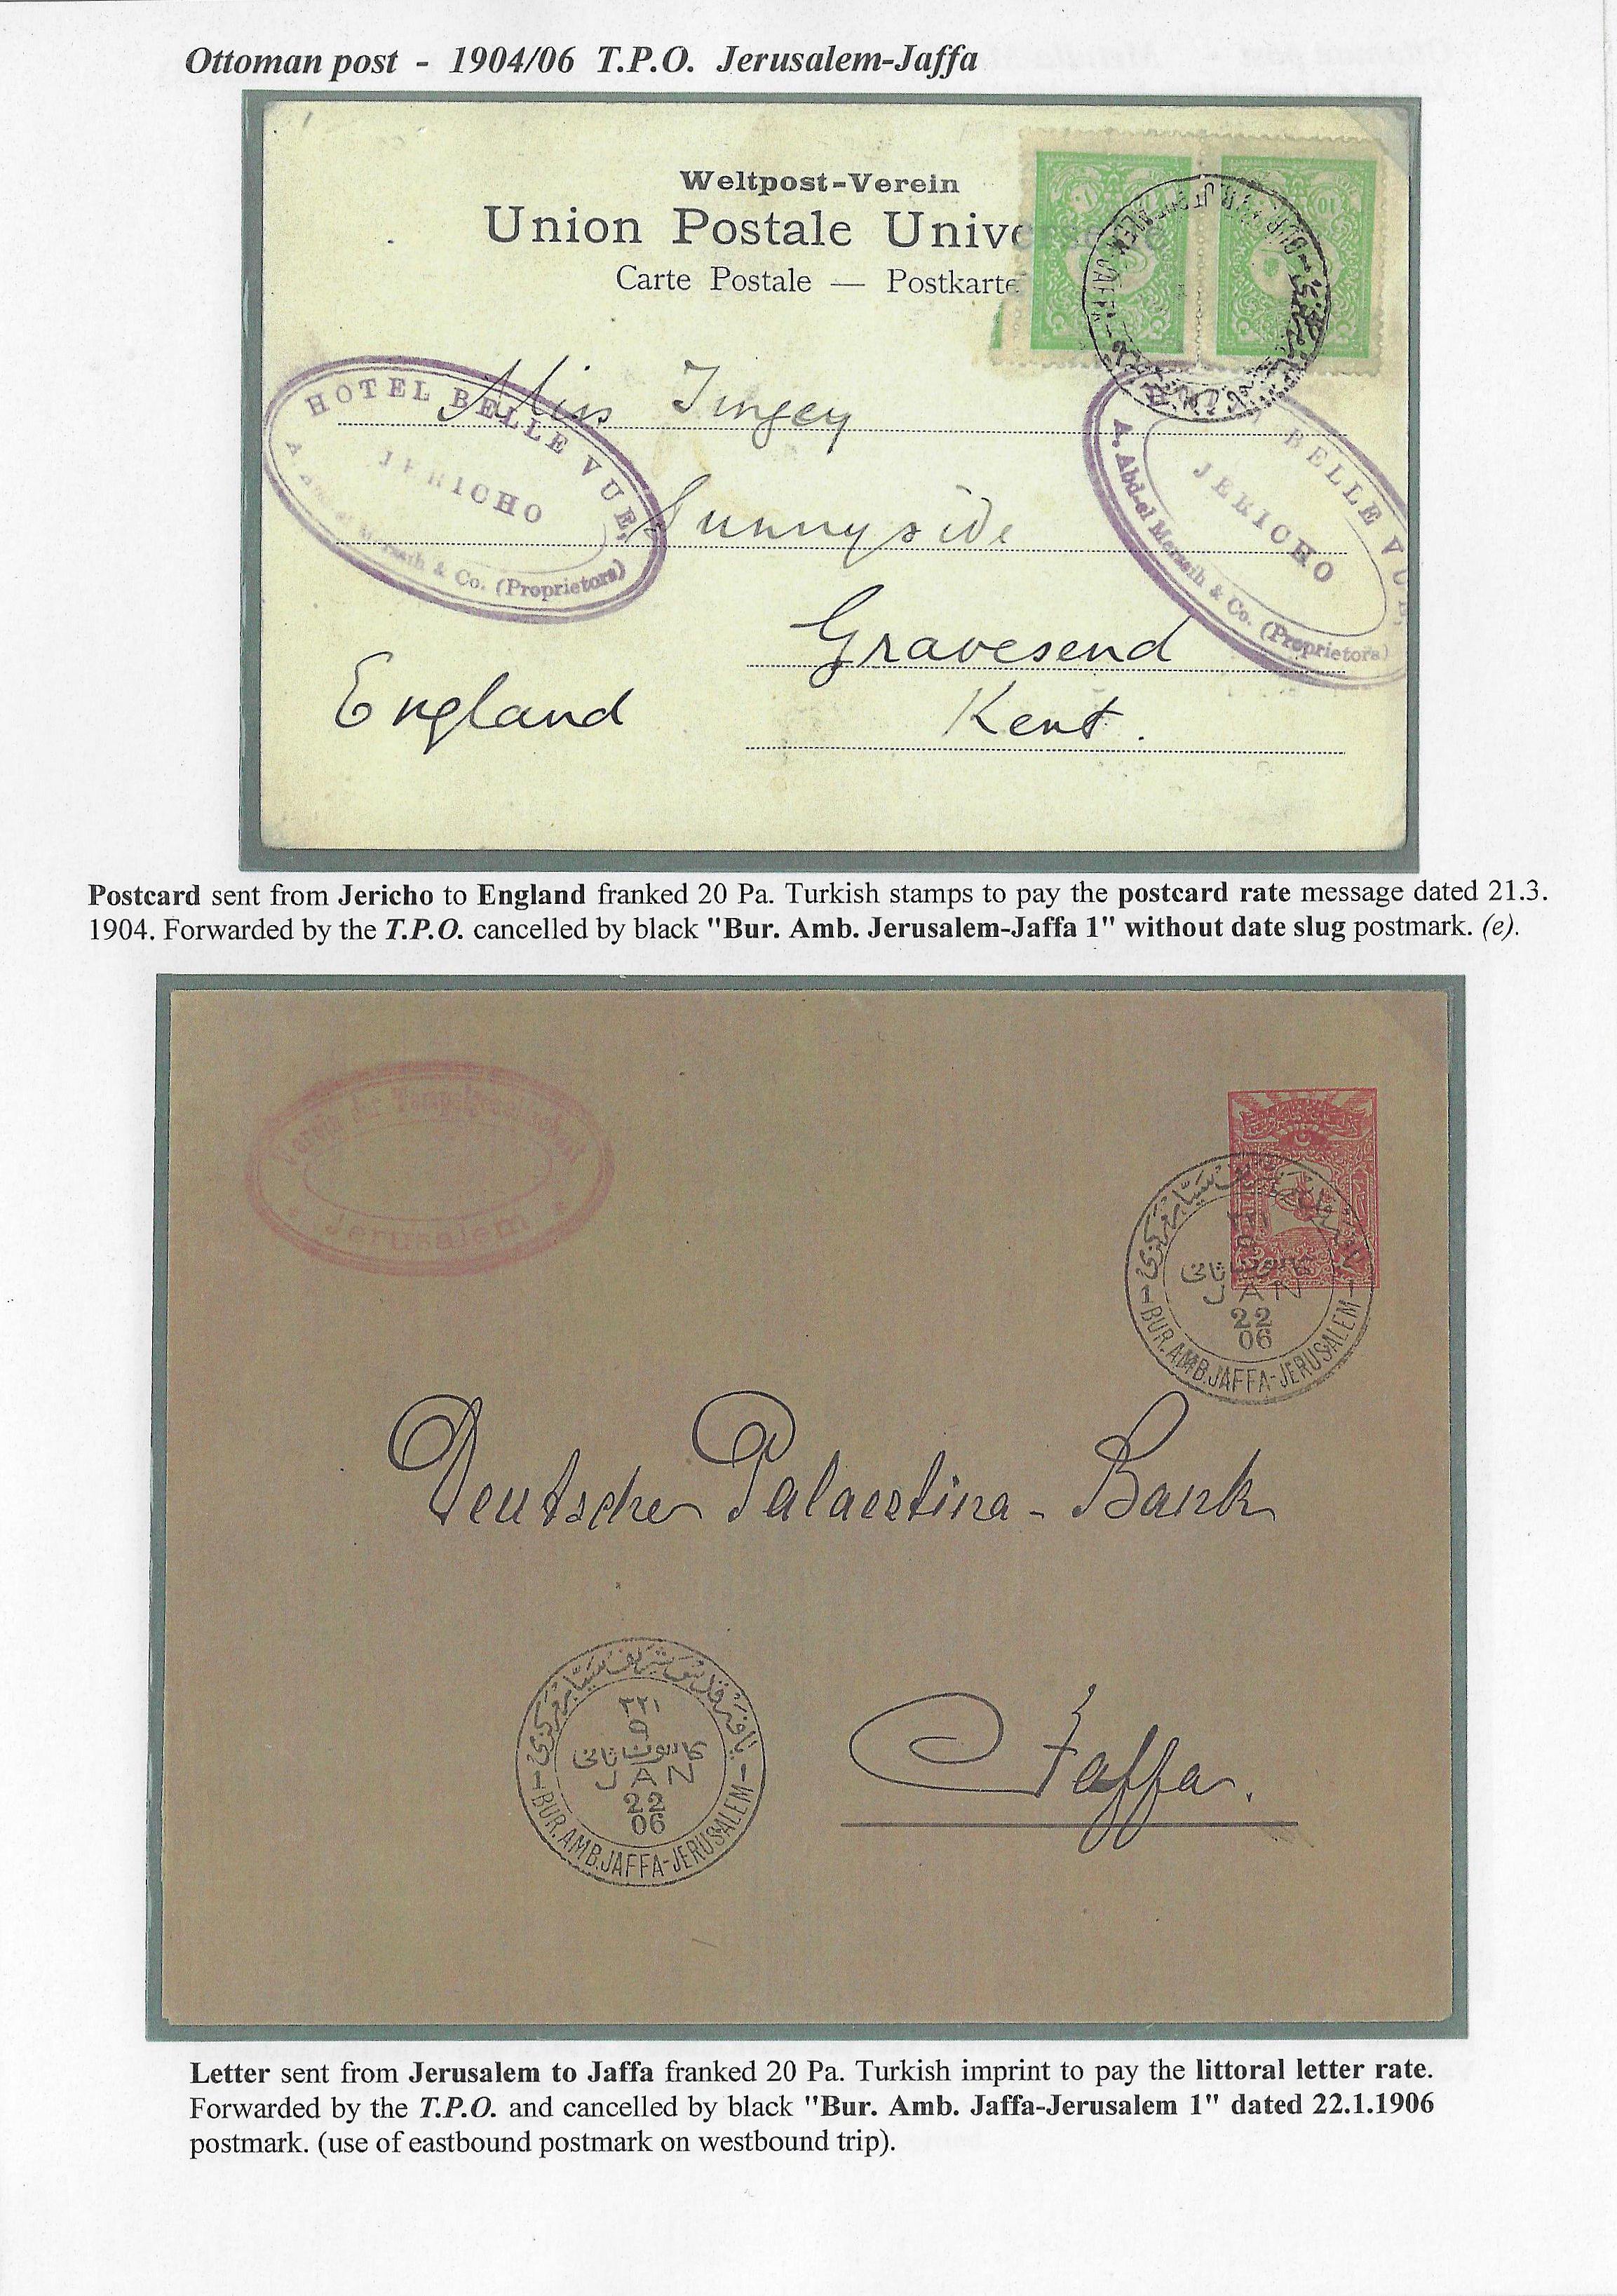 Ottoman post - 1904/06 T.P.O. Jerusalem-Jaffa
Weltpost-Verein
Union Postale Unive
Carte Postale — Postkarte
10
10
HOTEL BELLE VUE,
JERICHO
& Co. (Proprietors)
BELLE VUE,
JERICHO
A. Abd-el Merseih & Co. (Proprietors)
Miss Tingey
Sunnyside
Gravesend
Kent.
England
Postcard sent from Jericho to England franked 20 Pa. Turkish stamps to pay the postcard rate message dated 21.3.
1904. Forwarded by the T.P.O. cancelled by black "Bur. Amb. Jerusalem-Jaffa 1" without date slug postmark. (e).
Verein der Tempelgemeinschaft
Jerusalem
كانون ثانى
JAN
22
06
1 BUR.AMB.JAFFA-JERUSALEM 1
Deutsche Palaestina-Bank
Jaffa.
٣٢١
٩
كانون ثانى
JAN
22
06
1 BUR.AMB.JAFFA-JERUSALEM 1
Letter sent from Jerusalem to Jaffa franked 20 Pa. Turkish imprint to pay the littoral letter rate.
Forwarded by the T.P.O. and cancelled by black "Bur. Amb. Jaffa-Jerusalem 1" dated 22.1.1906
postmark. (use of eastbound postmark on westbound trip).